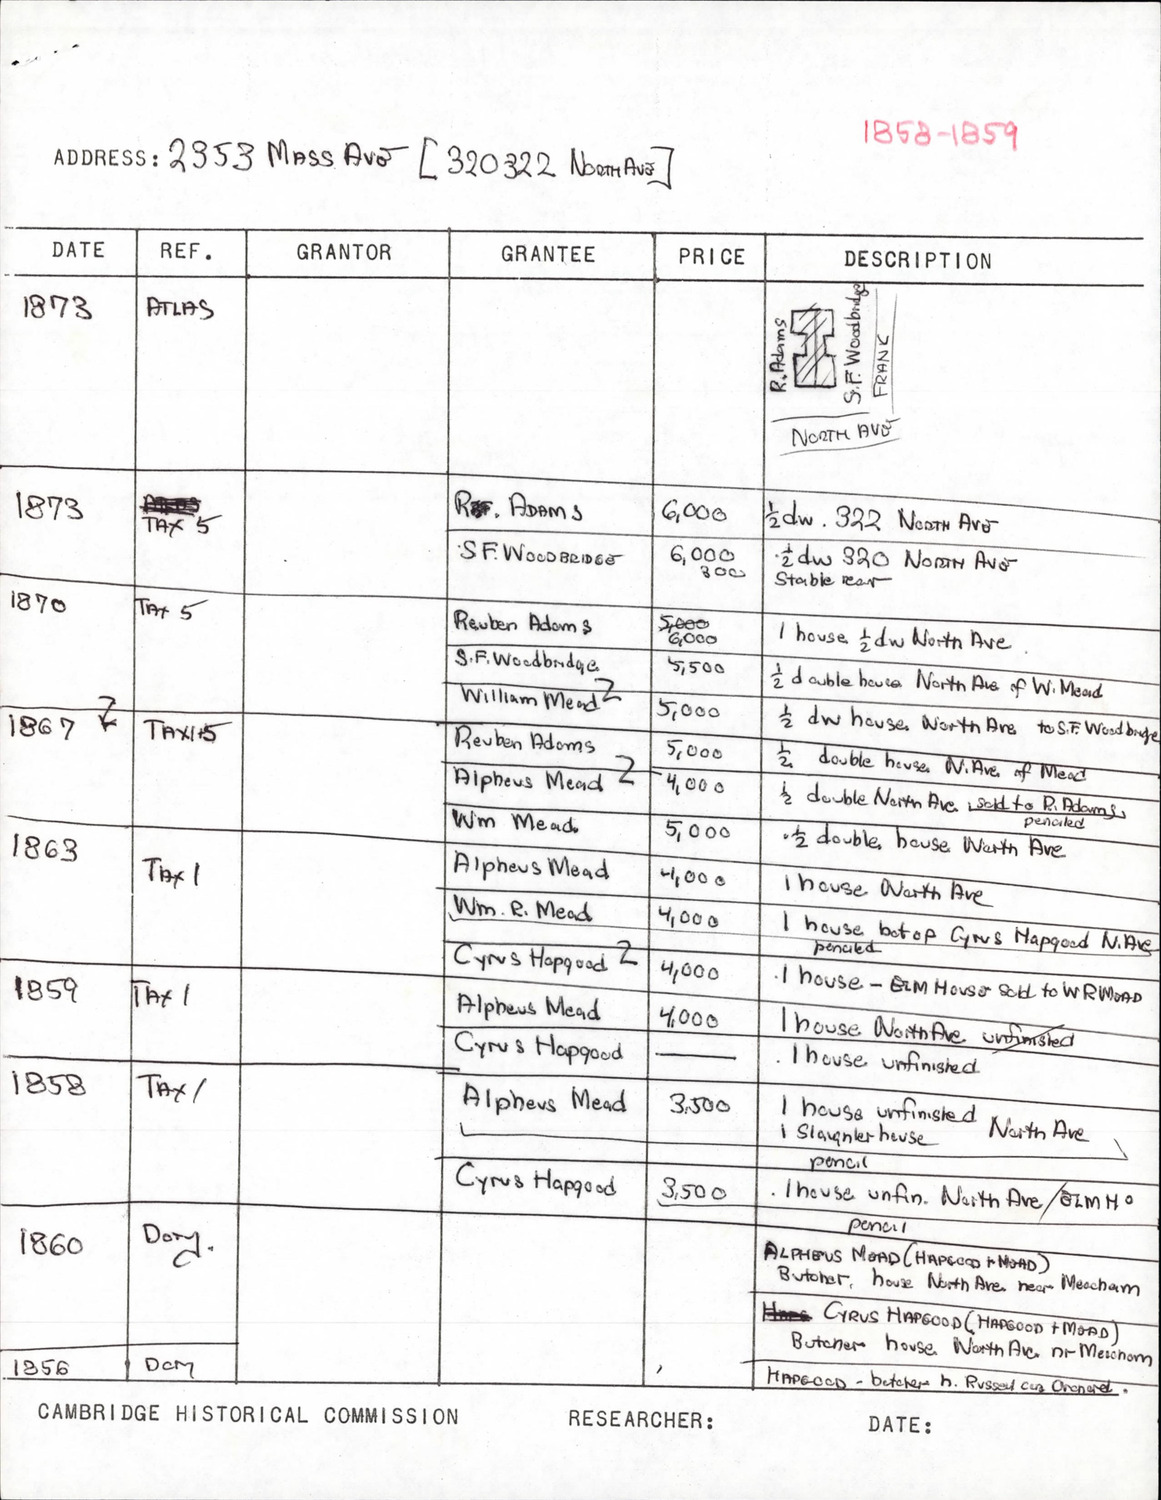 1858-1859
ADDRESS: 2353 MASS AVE [320322 NORTH AVE]
DATE REF. GRANTOR GRANTEE PRICE DESCRIPTION
1873 ATLAS
R. Adams
S.F. Woodbridge
FRANK
NORTH AVE
1873 TAX 5 R. ADAMS 6,000 ½ dw. 322 NORTH AVE
S F. WOODBRIDGE 6,000 ½ dw 320 NORTH AVE
300 Stable rear
1870 TAX 5 Reuben Adams 5,000 1 house ½ dw North Ave
6,000
S.F. Woodbridge 5,500 ½ double house North Ave of W. Mead
William Mead 2 5,000 ½ dw house North Ave to S.F. Woodbridge
1867 TAX 1+5 Reuben Adams 5,000 ½ double house N. Ave of Mead
Alpheus Mead 2 4,000 ½ double North Ave sold to R. Adams
penciled
Wm Mead 5,000 ½ double house North Ave
1863 TAX 1 Alpheus Mead 4,000 1 house North Ave
Wm. R. Mead 4,000 1 house bot of Cyrus Hapgood N. Ave
penciled
Cyrus Hapgood 2 4,000 1 house - ELM House sold to W R MEAD
1859 TAX 1 Alpheus Mead 4,000 1 house North Ave unfinished
Cyrus Hapgood — 1 house unfinished
1858 TAX 1 Alpheus Mead 3,500 1 house unfinished North Ave
1 Slaughter house
pencil
Cyrus Hapgood 3,500 1 house unfin. North Ave / ELM H o
pencil
1860 ALPHEUS MEAD (HAPGOOD + MEAD)
Butcher, house North Ave near Meacham
CYRUS HAPGOOD (HAPGOOD + MEAD)
Butcher house North Ave nr Meacham
1856 HAPGOOD - butcher h. Russell Orchard.
CAMBRIDGE HISTORICAL COMMISSION RESEARCHER: DATE: